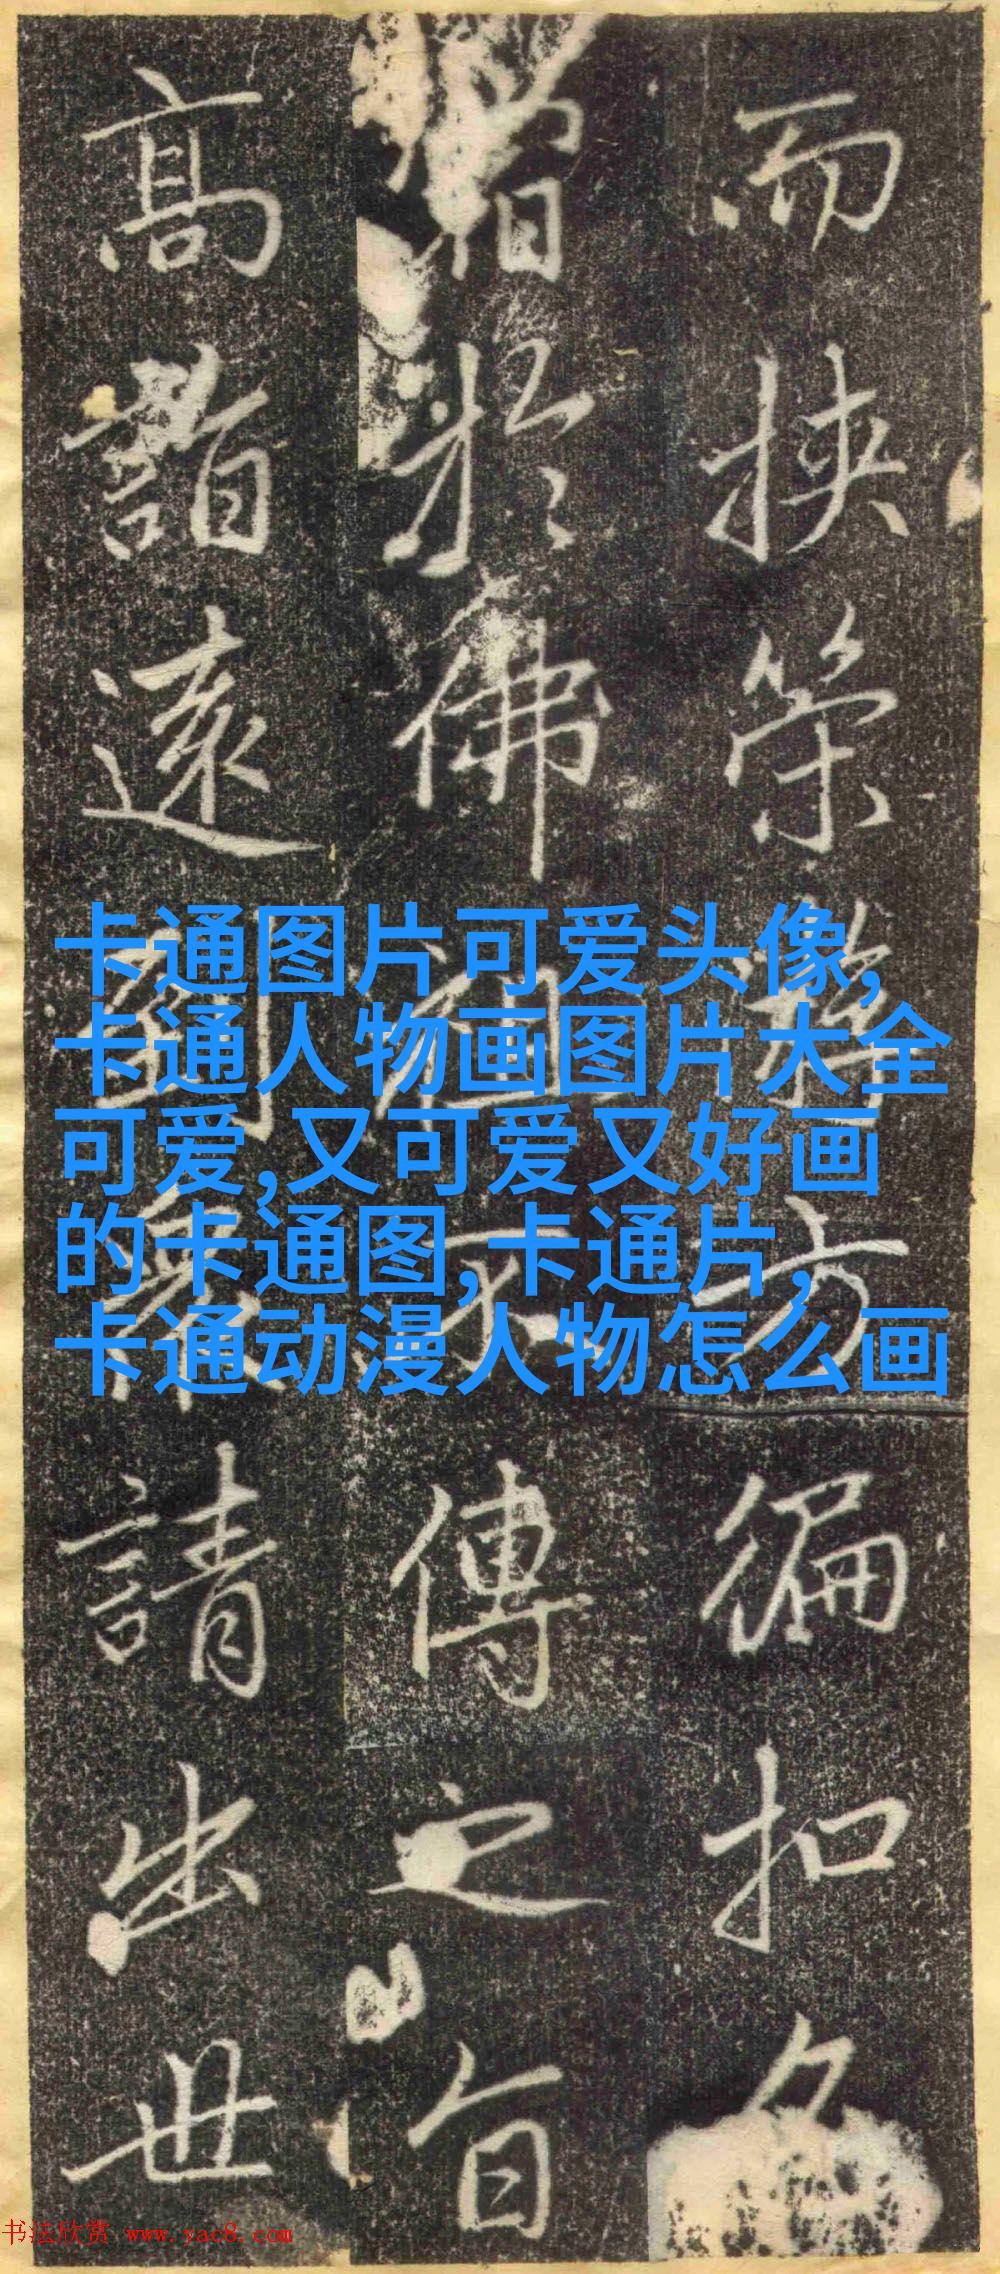 而挟荣辭方徧扣名
旨於佛祖不傳之旨
高詣遠到衆請出世
卡通图片可爱头像,
卡通人物画图片大全
可爱,又可爱又好画
的卡通图,卡通片,
卡通动漫人物怎么画
书法欣赏 www.yac8.com